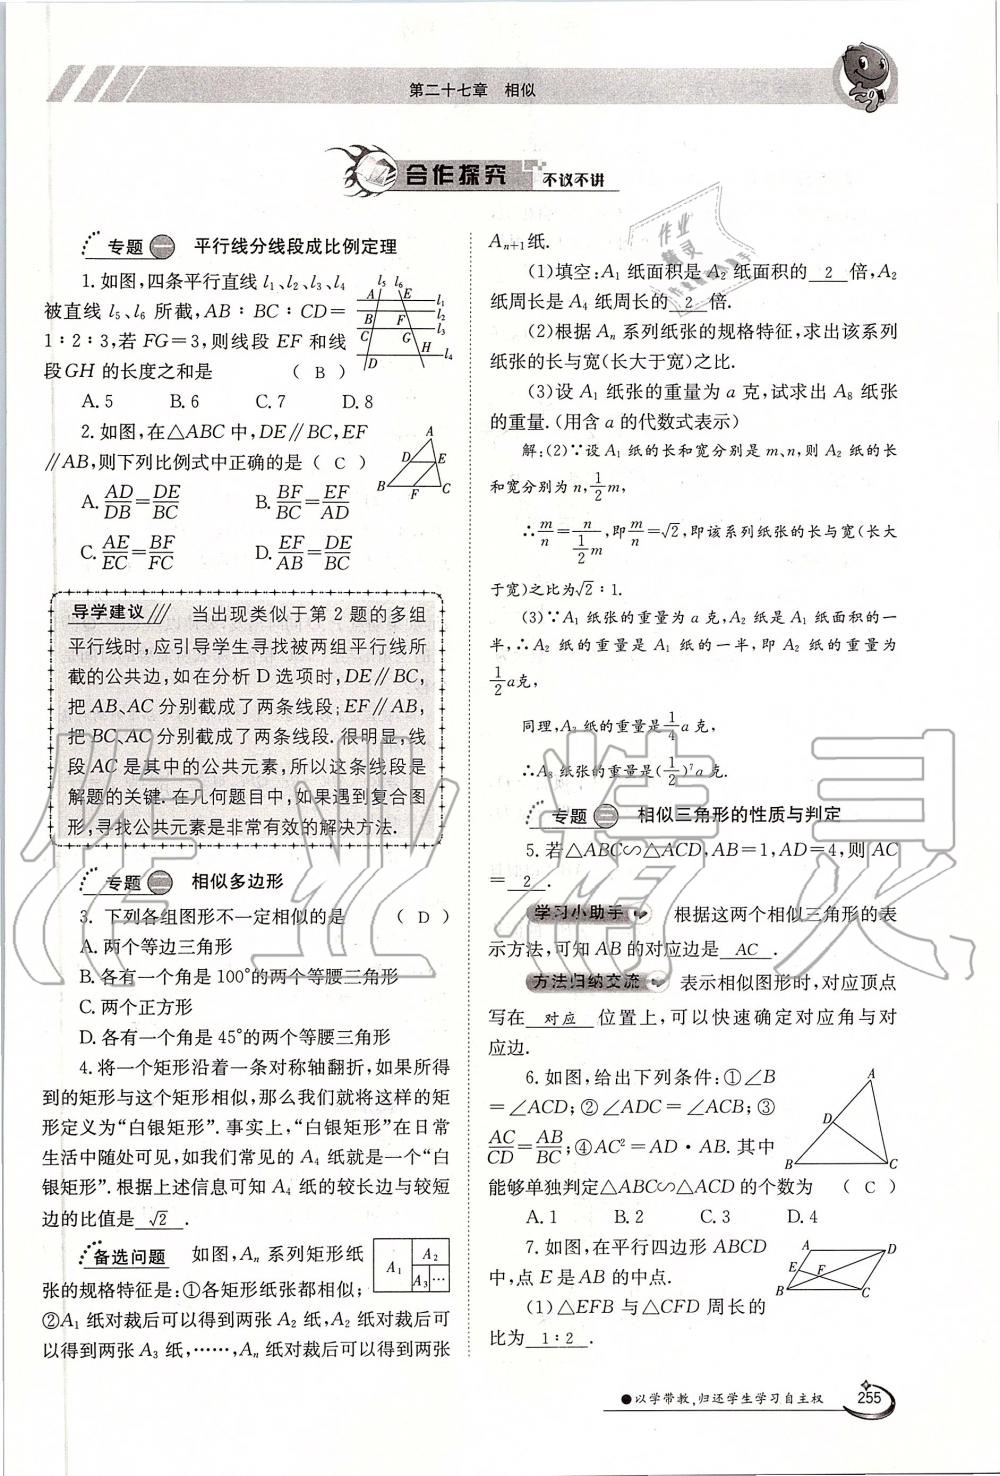 第二十七章　相似
合作探究 不议不讲
专题一　平行线分线段成比例定理
1. 如图,四条平行直线 l₁、l₂、l₃、l₄
被直线 l₅、l₆ 所截, AB∶BC∶CD=
1∶2∶3,若 FG=3,则线段 EF 和线
段GH 的长度之和是　（ B ）
A. 5　B. 6　C. 7　D. 8
l₅ l₆
A E l₁
B F l₂
C G l₃
D H l₄
2. 如图,在△ABC 中,DE∥BC,EF
∥AB,则下列比例式中正确的是（ C ）
A. AD/DB=DE/BC　B. BF/BC=EF/AD
C. AE/EC=BF/FC　D. EF/AB=DE/BC
A
D E
B F C
导学建议/// 当出现类似于第 2 题的多组
平行线时,应引导学生寻找被两组平行线所
截的公共边,如在分析 D 选项时,DE∥BC,
把 AB、AC 分别截成了两条线段;EF∥AB,
把 BC、AC 分别截成了两条线段. 很明显,线
段 AC 是其中的公共元素,所以这条线段是
解题的关键. 在几何题目中,如果遇到复合图
形,寻找公共元素是非常有效的解决方法.
专题二　相似多边形
3. 下列各组图形不一定相似的是　（ D ）
A. 两个等边三角形
B. 各有一个角是 100°的两个等腰三角形
C. 两个正方形
D. 各有一个角是 45°的两个等腰三角形
4. 将一个矩形沿着一条对称轴翻折,如果所得
到的矩形与这个矩形相似,那么我们就将这样的矩
形定义为“白银矩形”. 事实上,“白银矩形”在日常
生活中随处可见,如我们常见的 A₄ 纸就是一个“白
银矩形”. 根据上述信息可知 A₄ 纸的较长边与较短
边的比值是 √2 .
备选问题 如图,Aₙ 系列矩形纸
张的规格特征是:①各矩形纸张都相似;
②A₁ 纸对裁后可以得到两张 A₂ 纸,A₂ 纸对裁后可
以得到两张 A₃ 纸,……,Aₙ 纸对裁后可以得到两张
A₁ A₂ A₃ …
Aₙ₊₁纸.
(1)填空:A₁ 纸面积是 A₂ 纸面积的 2 倍,A₂
纸周长是 A₄ 纸周长的 2 倍.
(2)根据 Aₙ 系列纸张的规格特征,求出该系列
纸张的长与宽(长大于宽)之比.
(3)设 A₁ 纸张的重量为 a 克,试求出 A₈ 纸张
的重量.(用含 a 的代数式表示)
解:(2)∵设 A₁ 纸的长和宽分别是 m、n,则 A₂ 纸的长
和宽分别为 n,1/2 m,
∴m/n=n/(1/2 m),即m/n=√2,即该系列纸张的长与宽(长大
于宽)之比为√2∶1.
(3)∵A₁ 纸张的重量为 a 克,A₂ 纸是 A₁ 纸面积的一
半,∴A₂ 纸的重量是 A₁ 纸的一半,即 A₂ 纸的重量为
1/2 a克,
同理,A₃ 纸的重量是1/4 a 克,
∴A₈ 纸张的重量是(1/2)⁷a 克.
专题三　相似三角形的性质与判定
5. 若△ABC∽△ACD,AB=1,AD=4,则 AC
= 2 .
学习小助手 根据这两个相似三角形的表
示方法,可知 AB 的对应边是 AC .
方法归纳交流 表示相似图形时,对应顶点
写在 对应 位置上,可以快速确定对应角与对
应边.
6. 如图,给出下列条件:①∠B
=∠ACD;②∠ADC=∠ACB;③
AC/CD=AB/BC;④AC²=AD·AB. 其中
能够单独判定△ABC∽△ACD 的个数为　（ C ）
A. 1　B. 2　C. 3　D. 4
A
D
B C
7. 如图,在平行四边形 ABCD
中,点 E 是 AB 的中点.
(1)△EFB 与△CFD 周长的
比为 1∶2 .
A D
E F
B C
●以学带教,归还学生学习自主权
255
作业精灵
作业精灵